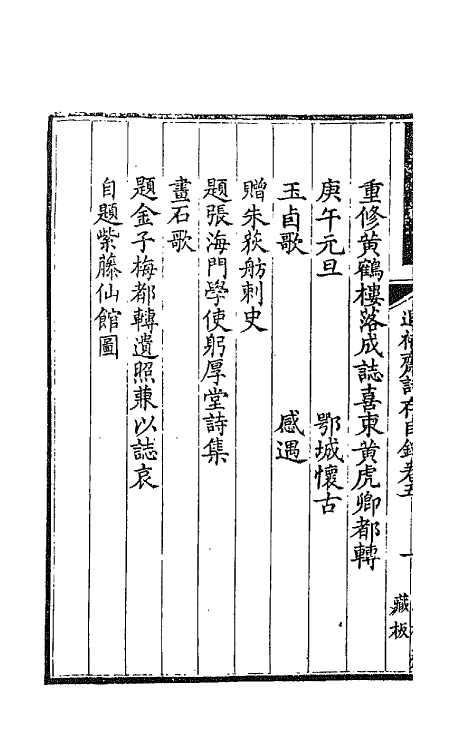 重修黃鶴樓落成誌喜柬黃虎卿都轉
庚午元旦　鄂城懷古
玉卣歌　感遇
贈朱荻舫刺史
題張海門學使躬厚堂詩集
畫石歌
題金子梅都轉遺照兼以誌哀
自題紫藤仙館圖
齋詩存目錄卷五
一
藏板